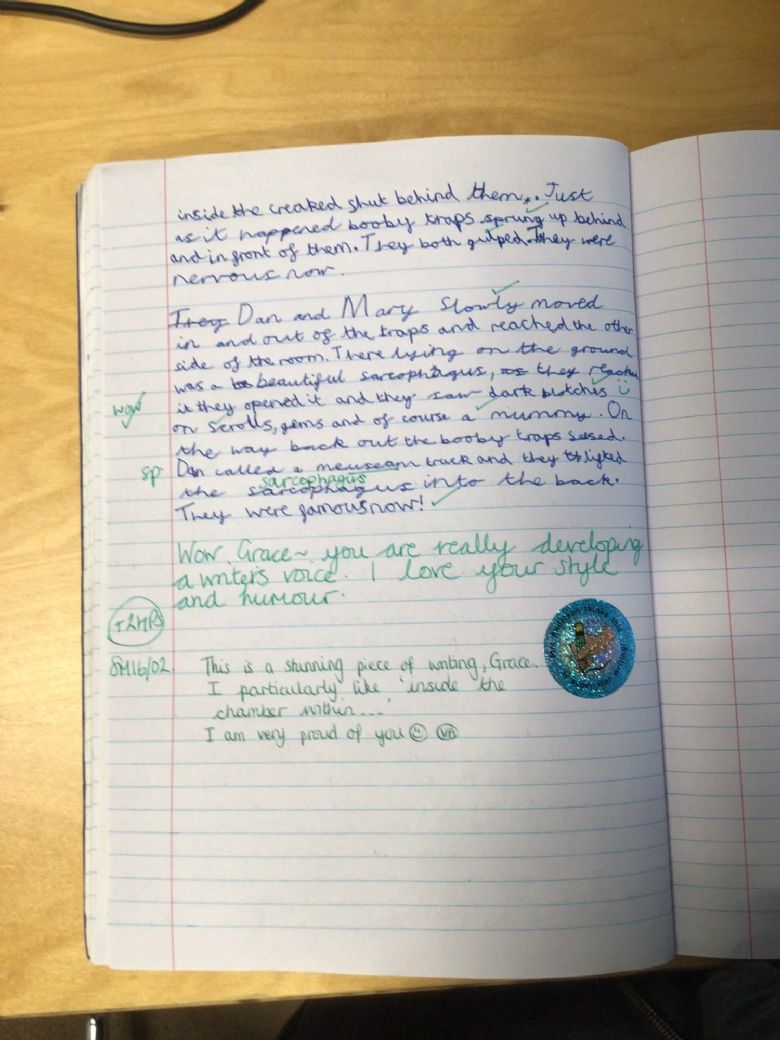 inside the creaked shut behind them... Just
as it happened booby traps sprung up behind
and in front of them. They both gulped. They were
nervous now.
They Dan and Mary Slowly moved
in and out of the traps and reached the other
side of the room. There lying on the ground
was a beautiful sarcophagus, as they reached
it they opened it and they saw dark blotches
wow
on scrolls, gems and of course a mummy. On
the way back out the booby traps seased.
sp
Dan called a meuseam truck and they lifted
sarcophagus
the sarcophagus into the back.
They were famous now!
Wow, Grace~ you are really developing
a writer's voice. I love your style
and humour.
SM16/02. This is a stunning piece of writing, Grace.
I particularly like 'inside the
chamber within...'
I am very proud of you